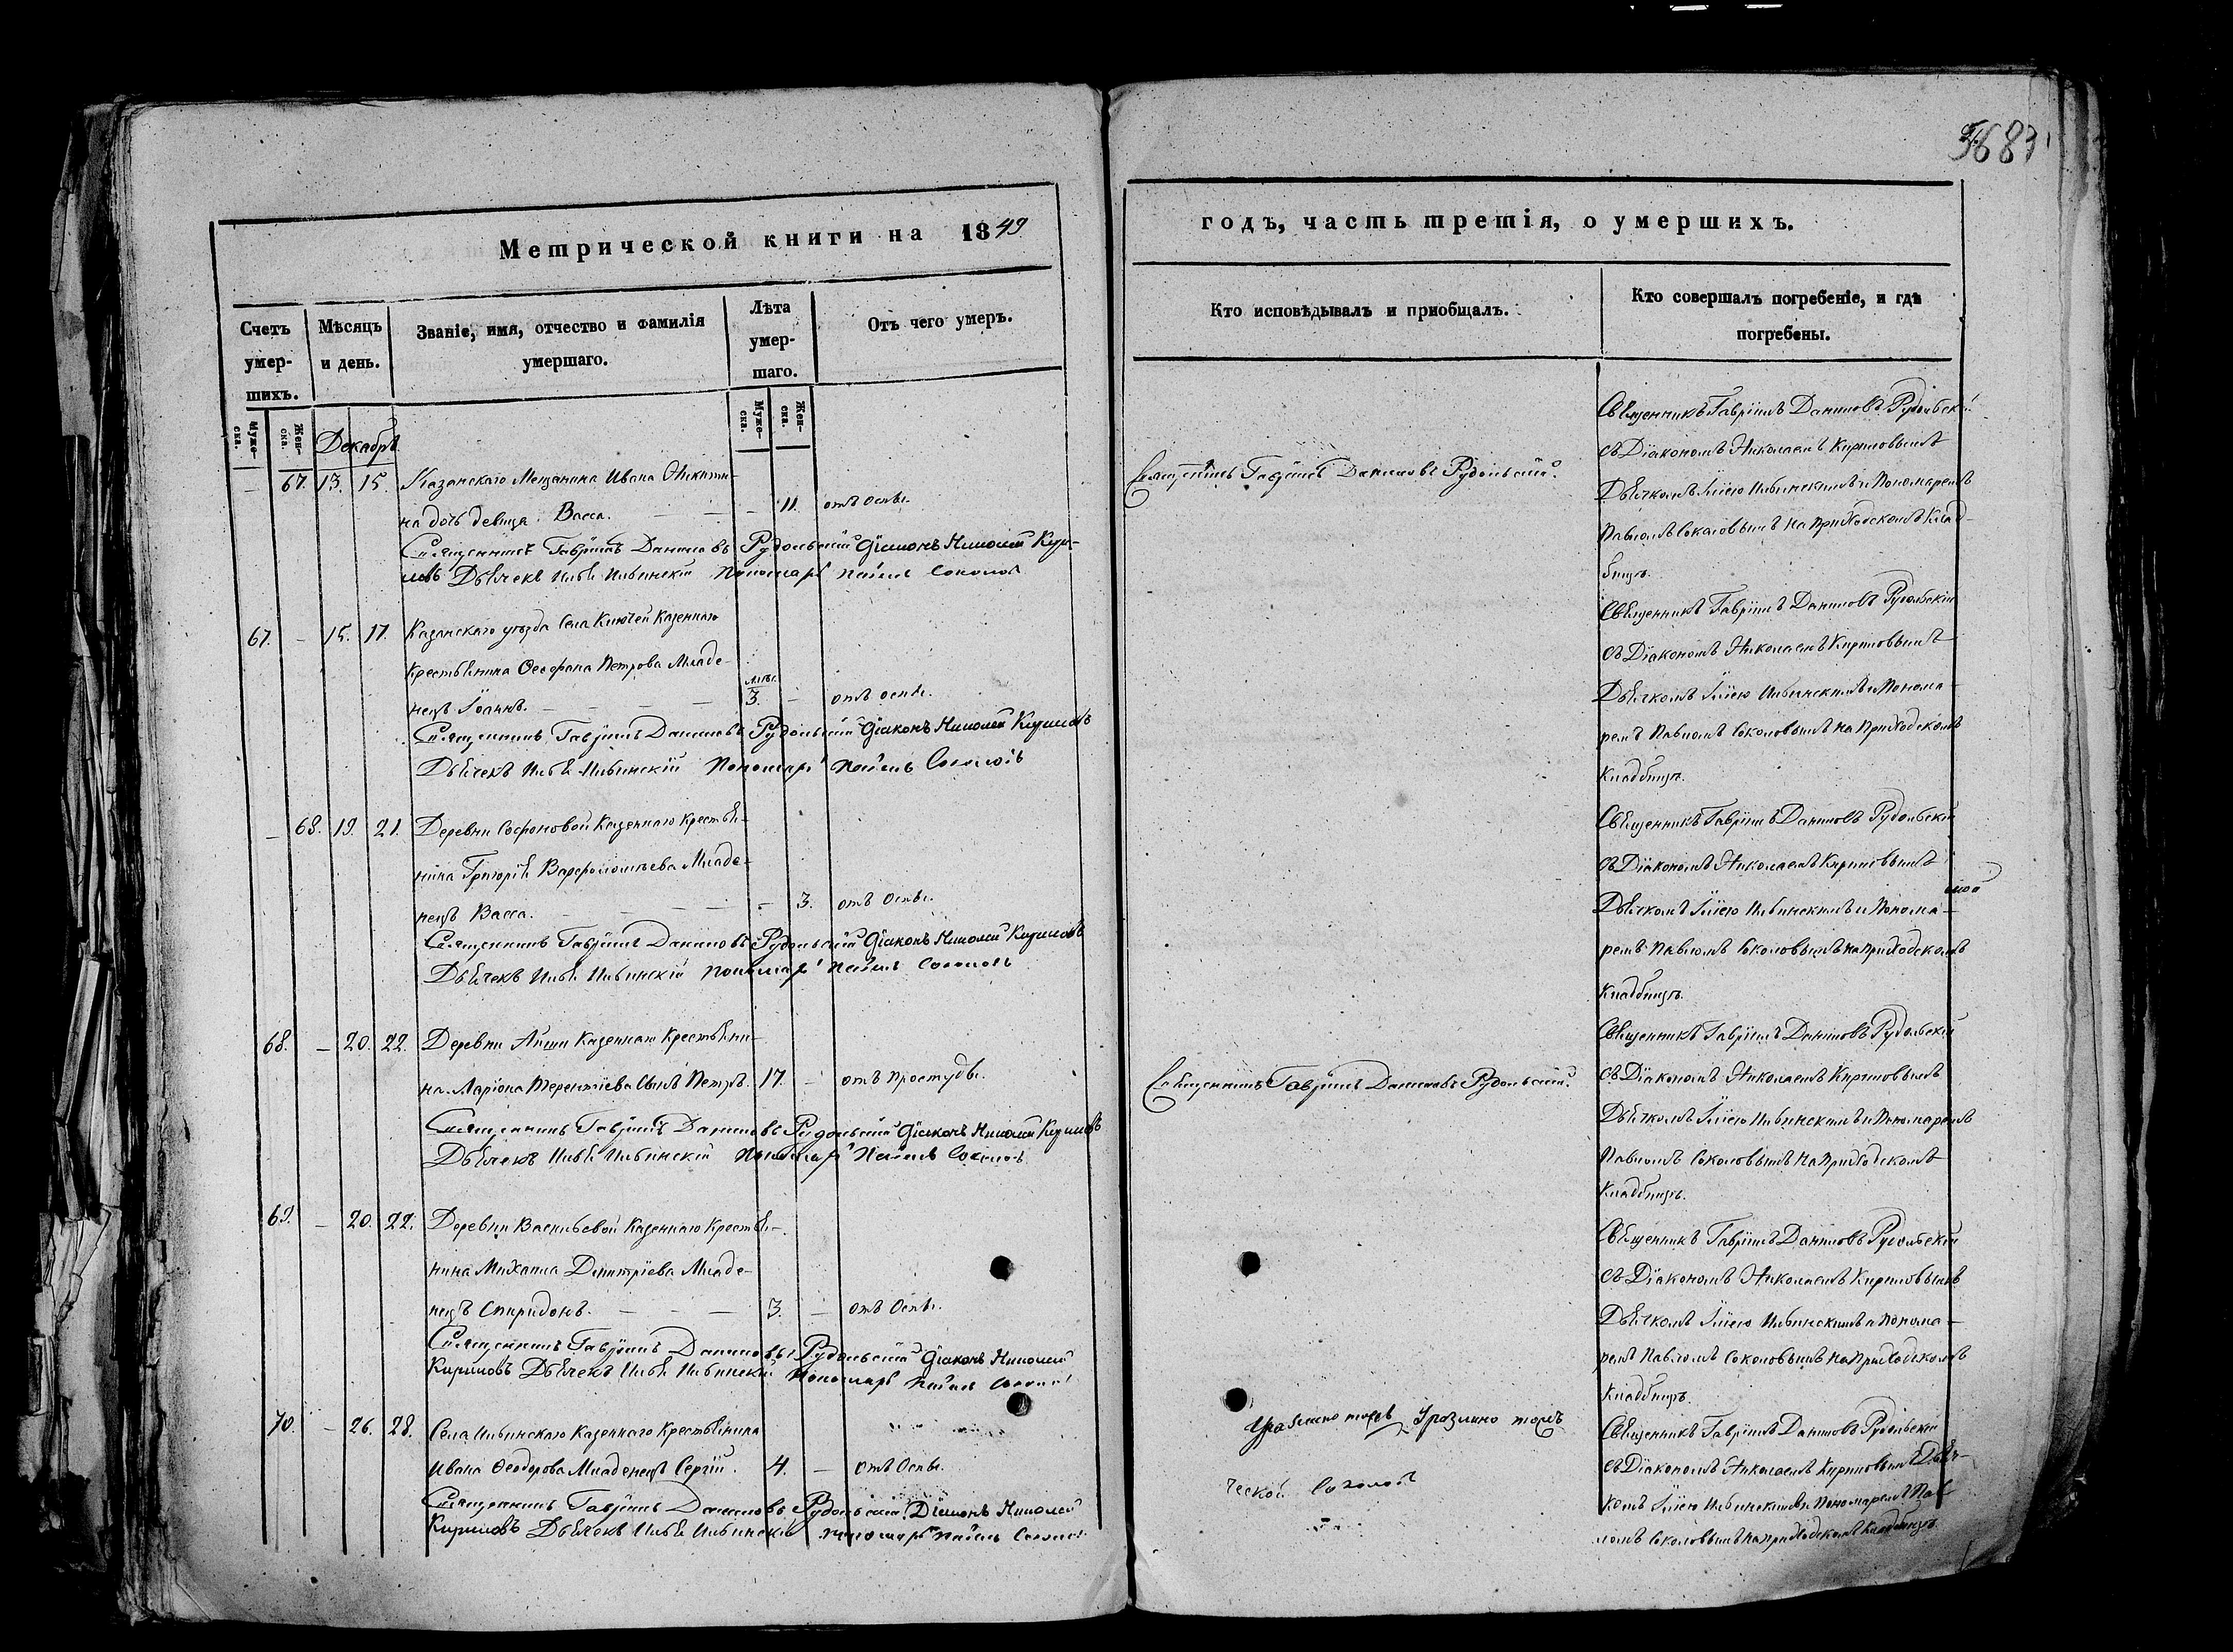 683
Метрической книги на 1849
годъ, часть третія, о умершихъ.
Счетъ умер-шихъ.
Мѣсяцъ и день.
Званіе, имя, отчество и фамилія умершаго.
Лѣта умер-шаго.
Отъ чего умеръ.
Кто исповѣдывалъ и приобщалъ.
Кто совершалъ погребеніе, и гдѣ погребены.
Муже-ска.
Жен-ска.
Муже-ска.
Жен-ска.
Декабрь
— 67. 13. 15. Казанскаго Мещанина Ивана Никити-
на дочь девица Васса. — — — 11. отъ Оспы.
Священникъ Гавріилъ Даниловъ Рудольскій Діаконъ Николай Кири-
ловъ Дьячекъ Илья Ильинскій Пономарь Павелъ Соколовъ
Священникъ Гавріилъ Даниловъ Рудольскій
Священникъ Гавріилъ Даниловъ Рудольскій
съ Діакономъ Николаемъ Кириловымъ
Дьячкомъ Іліею Ильинскимъ и Пономаремъ
Павломъ Соколовымъ на Приходскомъ Клад-
бищѣ.
67. — 15. 17. Казанскаго уѣзда Села Ключей Казеннаго
Крестьянина Ѳеофана Петрова Младе-
нецъ Іоаннъ. — — — — 3. — отъ оспы.
Священникъ Гавріилъ Даниловъ Рудольскій Діаконъ Николай Кириловъ
Дьячекъ Илья Ильинскій Пономарь Павелъ Соколовъ
Священникъ Гавріилъ Даниловъ Рудольскій
съ Діакономъ Николаемъ Кириловымъ
Дьячкомъ Іліею Ильинскимъ и Понома-
ремъ Павломъ Соколовымъ на Приходскомъ
Кладбищѣ.
— 68. 19. 21. Деревни Софоновой Казеннаго Крестья-
нина Григорія Варфоломѣева Младе-
нецъ Васса. — — — — — 3. отъ Оспы.
Священникъ Гавріилъ Даниловъ Рудольскій Діаконъ Николай Кириловъ
Дьячекъ Илья Ильинскій Пономарь Павелъ Соколовъ
Священникъ Гавріилъ Даниловъ Рудольскій
съ Діакономъ Николаемъ Кириловымъ
Дьячкомъ Іліею Ильинскимъ и Понома-
ремъ Павломъ Соколовымъ на Приходскомъ
Кладбищѣ.
68. — 20. 22. Деревни Айши Казеннаго Крестьяни-
на Ларіона Терентіева Сынъ Петръ. 17. — отъ Простуды.
Священникъ Гавріилъ Даниловъ Рудольскій Діаконъ Николай Кириловъ
Дьячекъ Илья Ильинскій Пономарь Павелъ Соколовъ
Священникъ Гавріилъ Даниловъ Рудольскій.
Священникъ Гавріилъ Даниловъ Рудольскій
съ Діакономъ Николаемъ Кириловымъ
Дьячкомъ Іліею Ильинскимъ и Пономаремъ
Павломъ Соколовымъ на Приходскомъ
Кладбищѣ.
69. — 20. 22. Деревни Васильевой Казеннаго Крестья-
нина Михаила Димитріева Младе-
нецъ Спиридонъ. — — — 3. — отъ Оспы.
Священникъ Гавріилъ Даниловъ Рудольскій Діаконъ Николай
Кириловъ Дьячекъ Илья Ильинскій Пономарь Павелъ Соколовъ
Священникъ Гавріилъ Даниловъ Рудольскій
съ Діакономъ Николаемъ Кириловымъ
Дьячкомъ Іліею Ильинскимъ и Понома-
ремъ Павломъ Соколовымъ на Приходскомъ
Кладбищѣ.
70. — 26. 28. Села Ильинскаго Казеннаго Крестьянина
Ивана Ѳеодорова Младенецъ Сергій. 4. — отъ Оспы.
Священникъ Гавріилъ Даниловъ Рудольскій Діаконъ Николай
Кириловъ Дьячекъ Илья Ильинскій Пономарь Павелъ Соколовъ
Священникъ Гавріилъ Даниловъ Рудольскій
съ Діакономъ Николаемъ Кириловымъ Дьяч-
комъ Іліею Ильинскимъ и Пономаремъ Пав-
ломъ Соколовымъ на Приходскомъ Кладбищѣ.